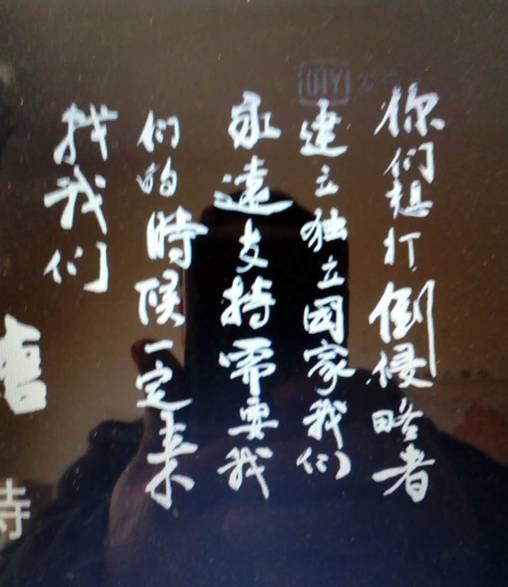 你们想打倒侵略者
建立独立國家我们
永遠支持需要我
们的時候一定来
找我们
QIY
寺